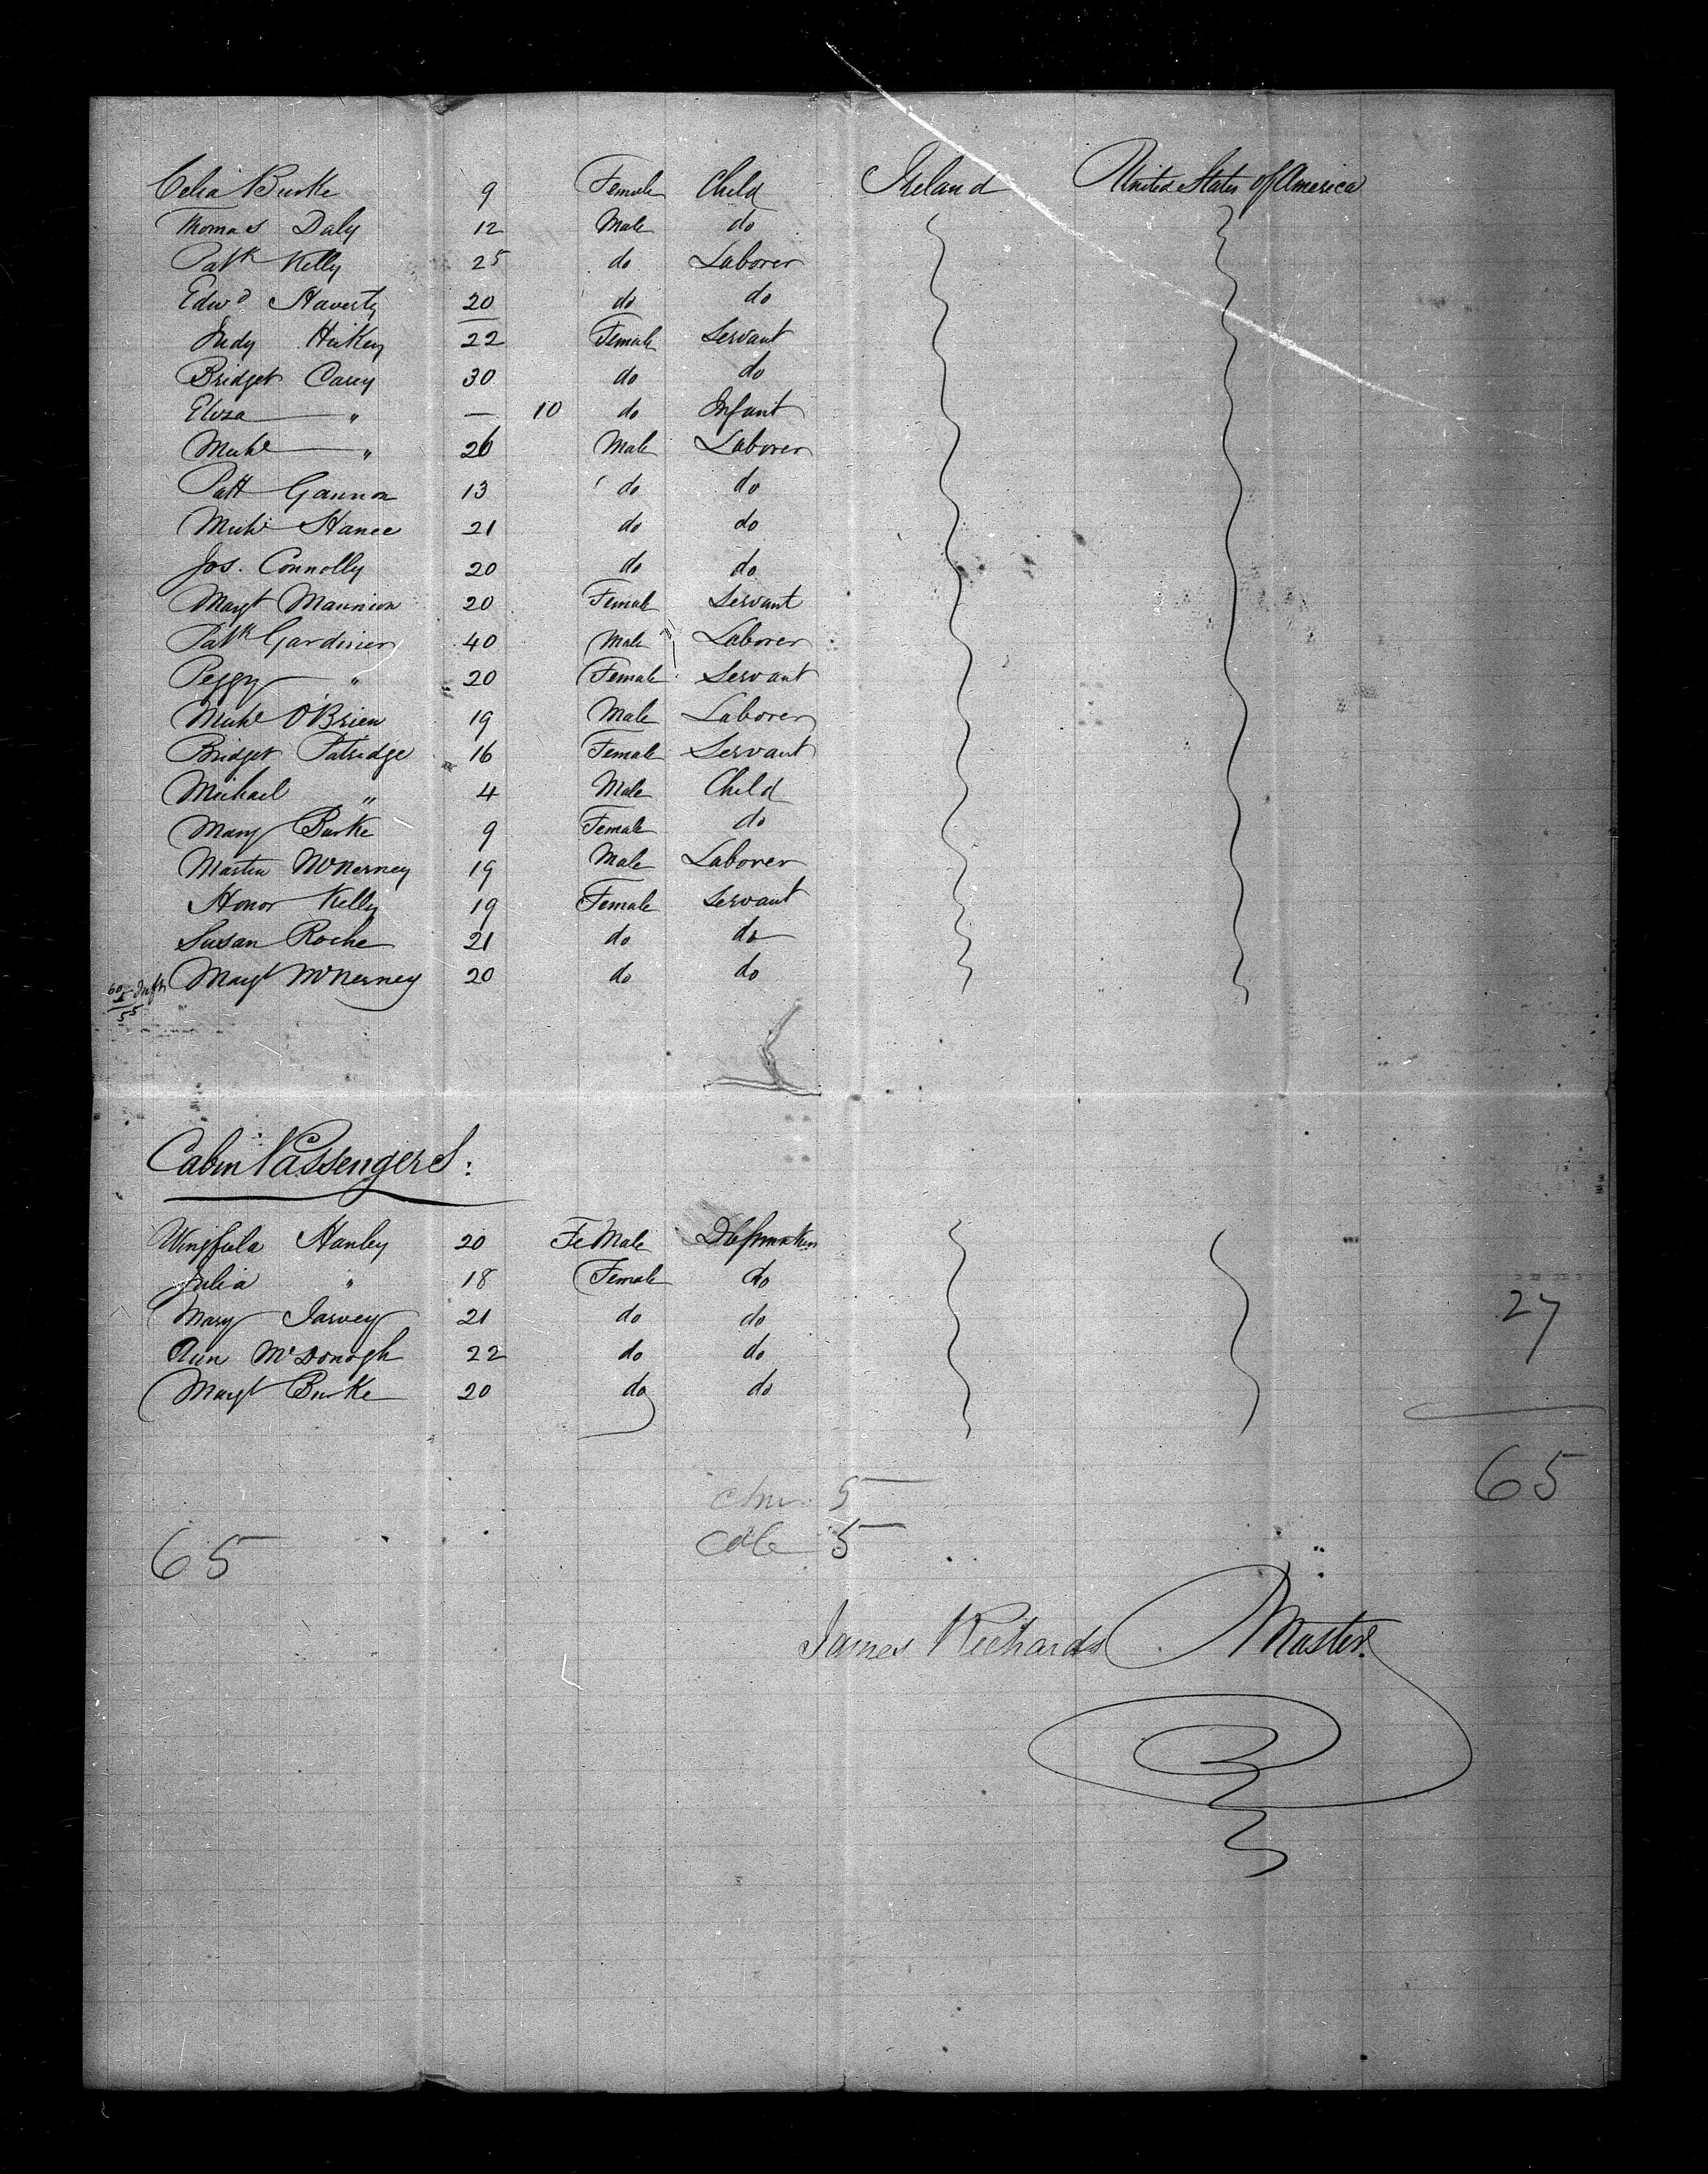 Celia Burke 9 Female Child Ireland United States of America
Thomas Daly 12 Male do
Patk Kelly 25 do Laborer
Edwd Haverty 20 do do
Judy Hickey 22 Female Servant
Bridget Carey 30 do do
Eliza " — 10 do Infant
Michl " 26 Male Laborer
Patt Gannon 13 do do
Michl Hanee 21 do do
Jos. Connolly 20 do do
Margt Mannion 20 Female Servant
Patk Gardiner 40 Male Laborer
Peggy " 20 Female Servant
Michl O'Brien 19 Male Laborer
Bridget Patridge 16 Female Servant
Michael " 4 Male Child
Mary Burke 9 Female do
Martin McNerney 19 Male Laborer
Honor Kelly 19 Female Servant
Susan Roche 21 do do
Margt McNerney 20 do do
60
55
Cabin Passengers:
Hanley 20 FeMale
Julia " 18 Female do
Mary Jarvey 21 do do
27
Ann McDonogh 22 do do
Margt Burke 20 do do
65
5
5
65
James Richards Master